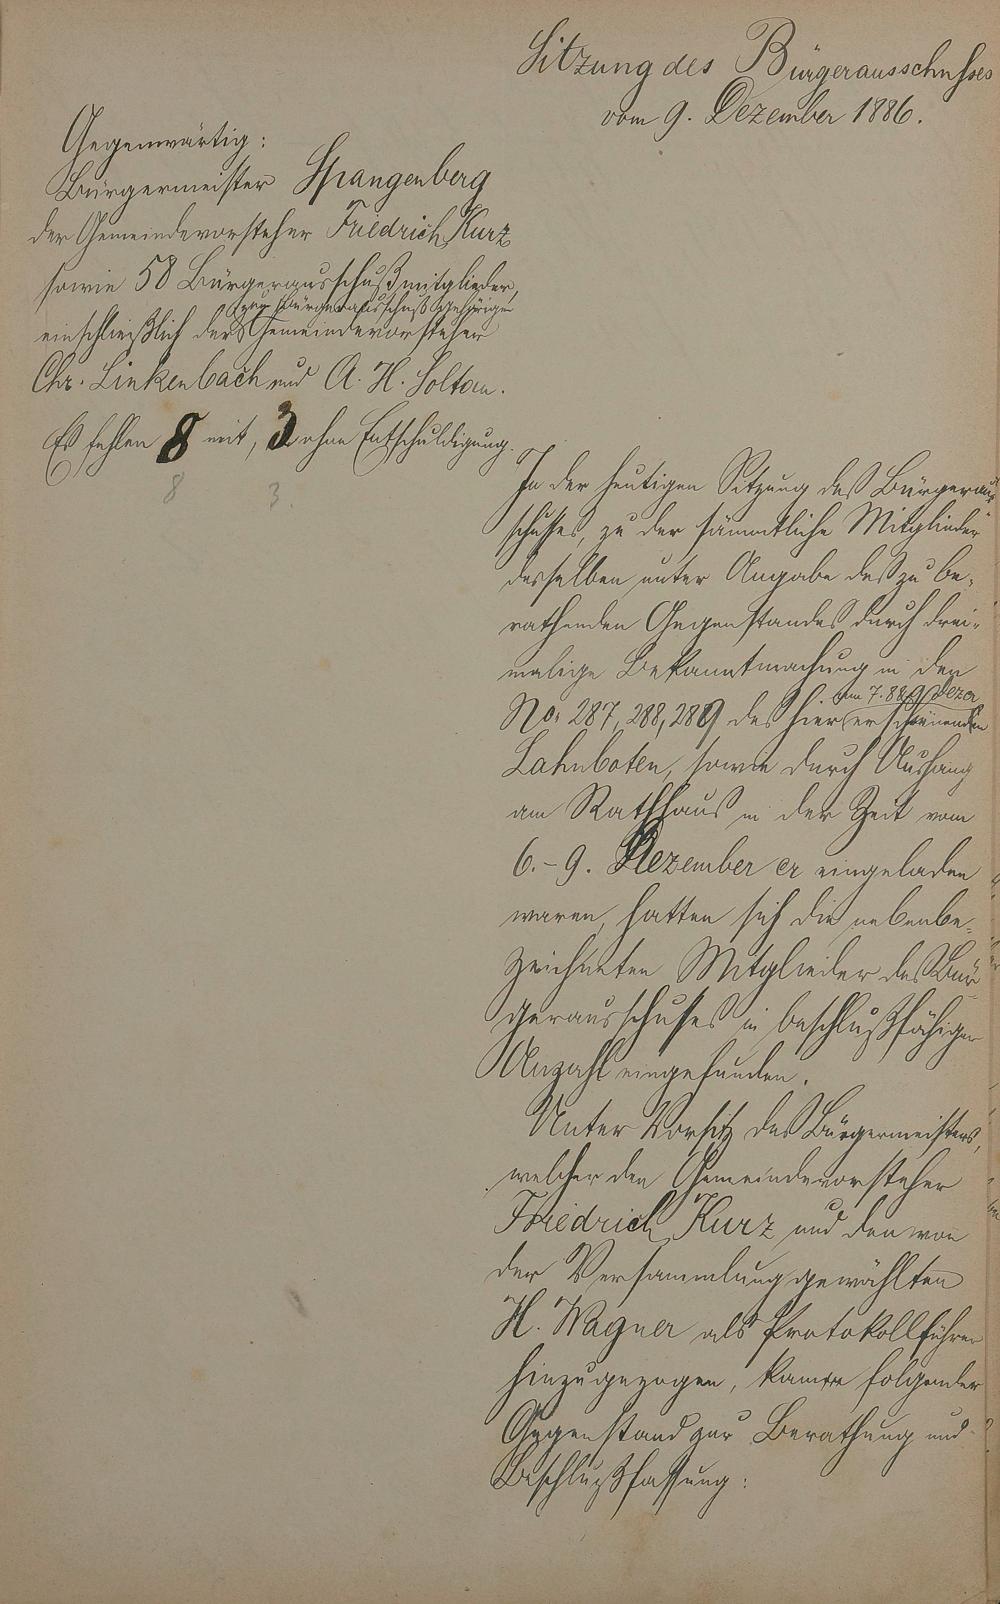 Sitzung des Bürgerausschusses
vom 9. Dezember 1886.
Gegenwärtig:
Bürgermeister Spangenberg
der Gemeindevorsteher Friedrich Kurz
sowie 58 Bürgerausschußmitglieder,
zum Bürgerausschuß gehörigen
einschließlich der Gemeindevorsteher
Chr. Linkenbach und A. H. Soltau.
Es fehlen 8 mit, 3 ohne Entschuldigung.
8 3.
In der heutigen Sitzung des Bürgeraus
schusses, zu der sämmtliche Mitglieder
desselben unter Angabe des zu be-
rathenden Gegenstandes durch drei-
malige Bekanntmachung in den
vom 7. 8 & 9 Dezbr
No. 287, 288, 289 des hier erscheinenden
Lahnboten, sowie durch Aushang
am Rathhaus in der Zeit vom
6.-9. Dezember cr eingeladen
waren, hatten sich die nebenbe-
zeichneten Mitglieder des Bür
gerausschusses in beschlußfähiger
Anzahl eingefunden.
Unter Vorsitz des Bürgermeisters,
welcher den Gemeindevorsteher
Friedrich Kurz und den von
der Versammlung gewählten
H. Wagner als Protokollführer
hinzugezogen, kam folgender
Gegenstand zur Berathung und
Beschlußfassung: